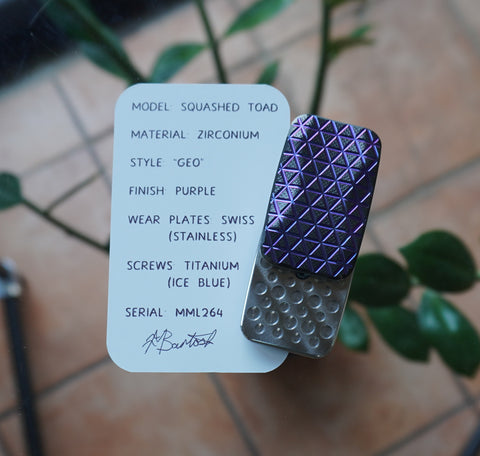 MODEL: SQUASHED TOAD
MATERIAL: ZIRCONIUM
STYLE: "GEO"
FINISH: PURPLE
WEAR PLATES: SWISS
(STAINLESS)
SCREWS: TITANIUM
(ICE BLUE)
SERIAL: MML264